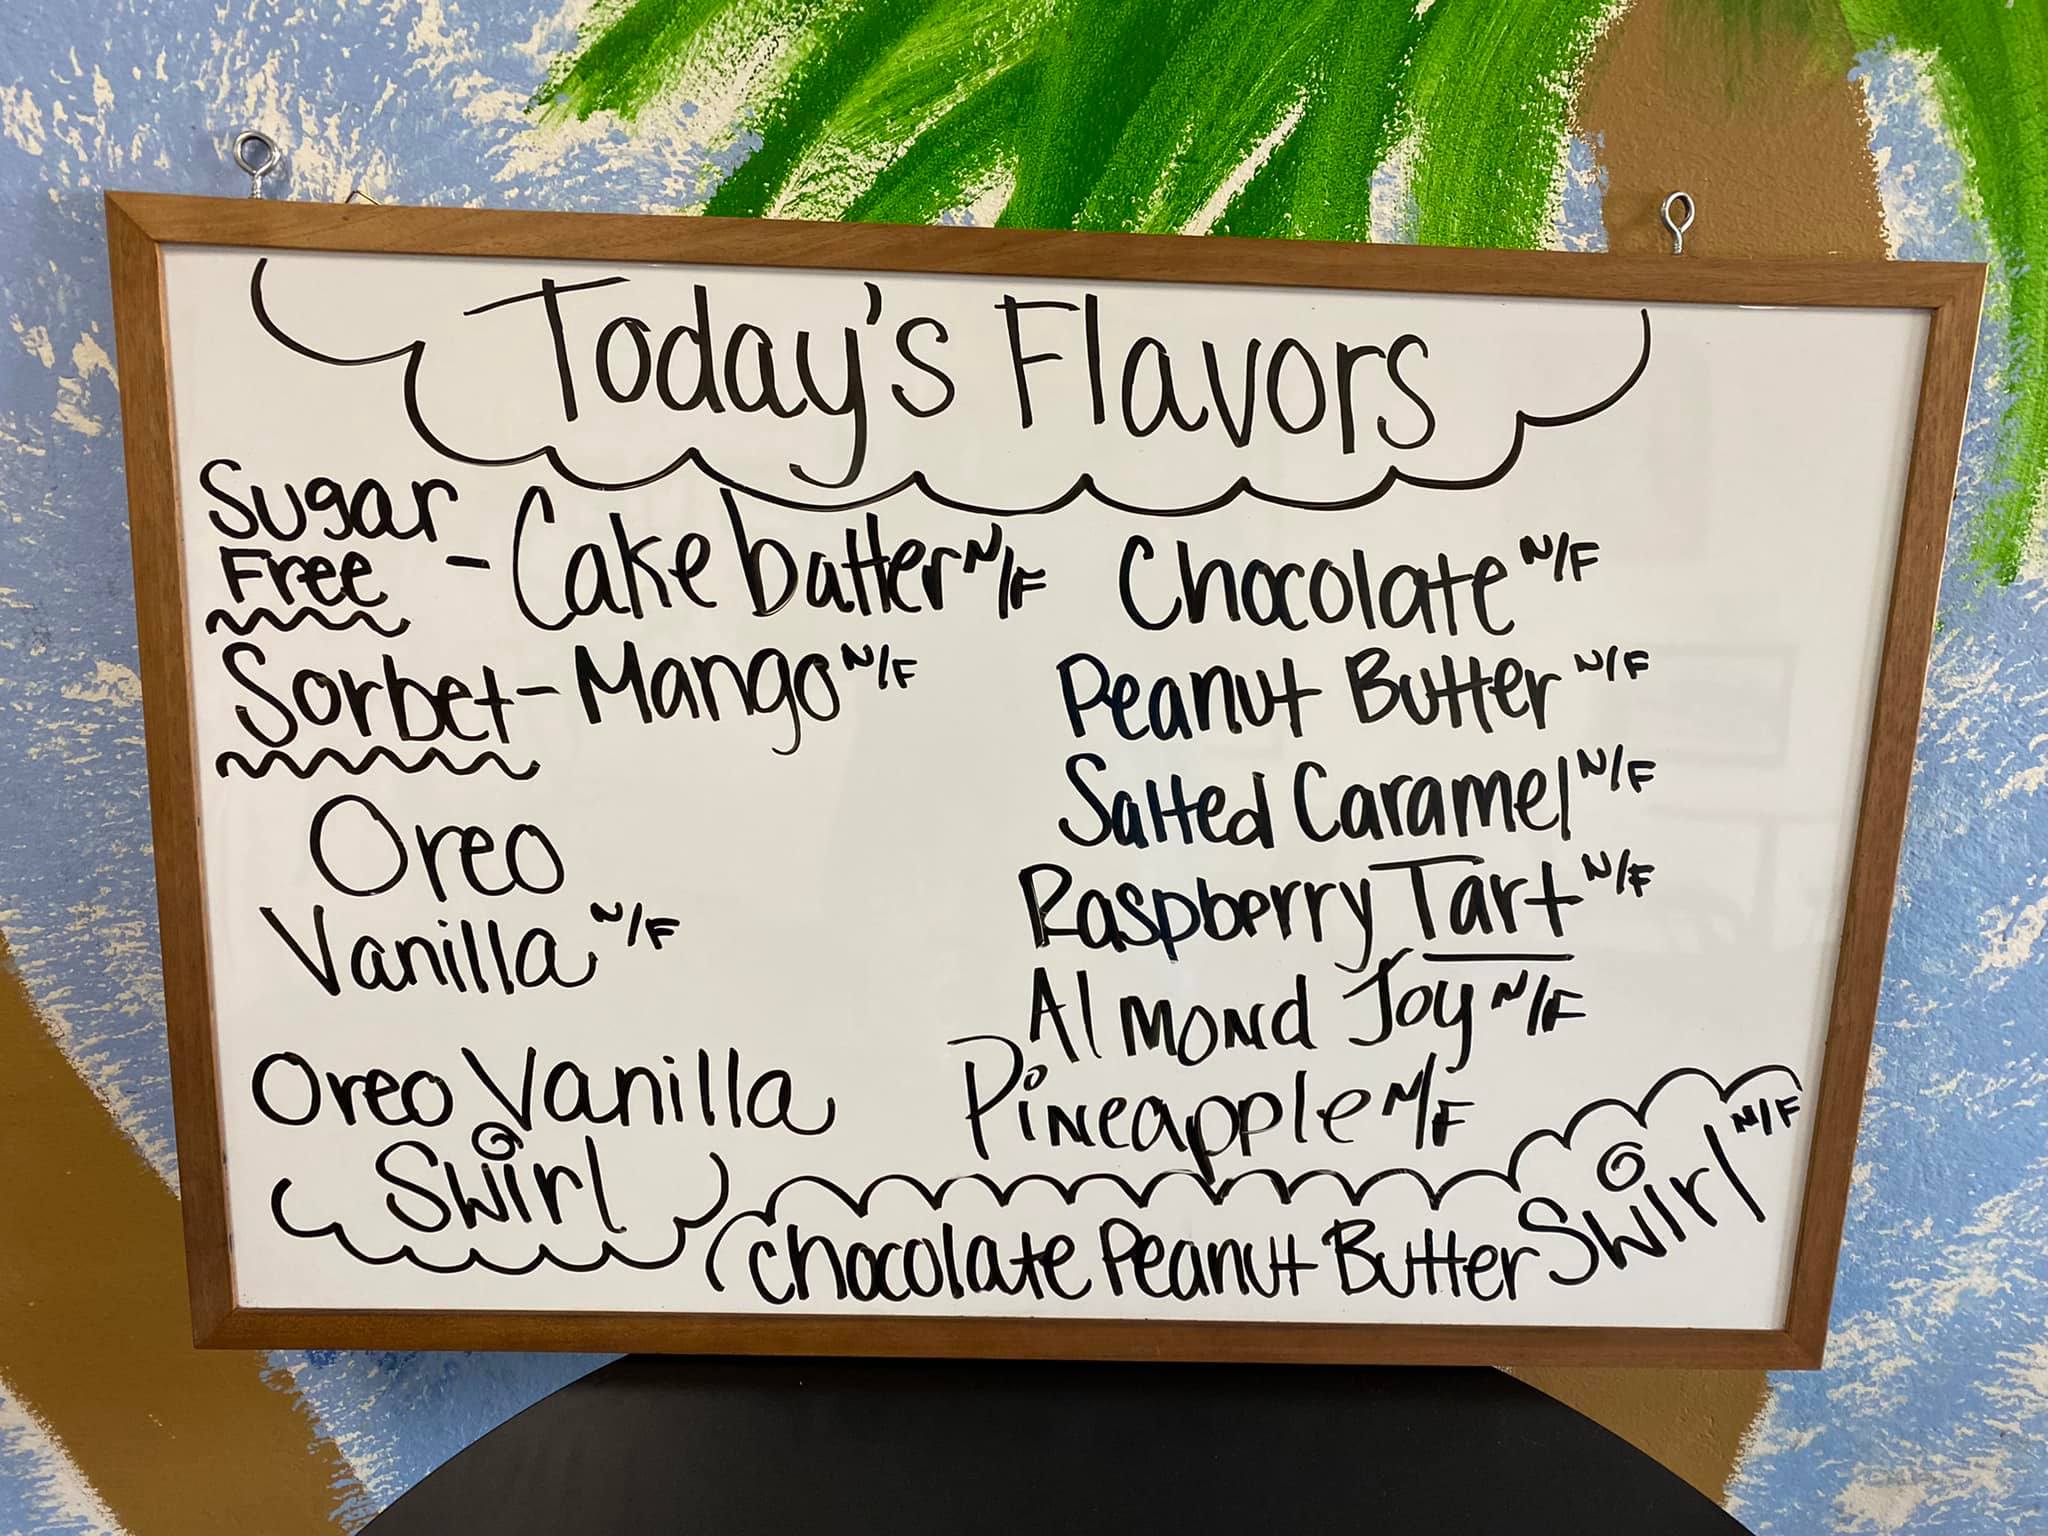 Today's Flavors
Sugar
Free - Cake batter N/F
Sorbet - Mango N/F
Oreo
Vanilla N/F
Oreo Vanilla
Swirl
Chocolate N/F
Peanut Butter N/F
Salted Caramel N/F
Raspberry Tart N/F
Almond Joy N/F
Pineapple N/F
Chocolate Peanut Butter Swirl N/F